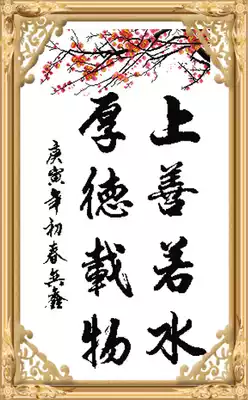 上善若水
厚德載物
庚寅年初春兵鑫